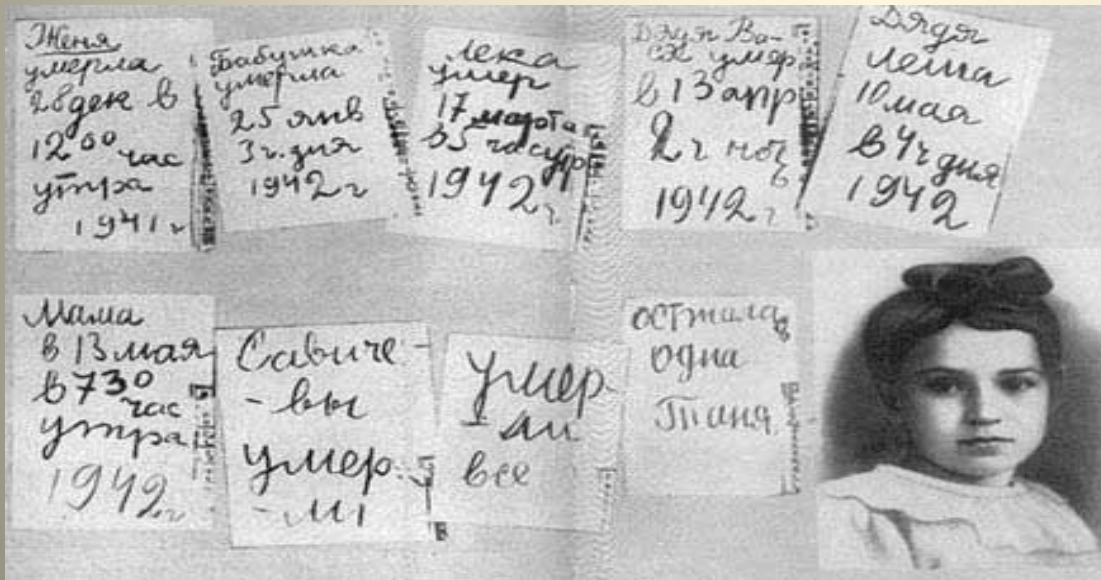 Женя
умерла
28 дек в
12 00 час
утра
1941 г
Бабушка
умерла
25 янв
3 ч. дня
1942 г
Лека
умер
17 марта
в 5 час утр
1942 г
Дядя Ва-
ся умер
в 13 апр
2 ч ноч
1942 г
Дядя
Леша
10 мая
в 4 ч дня
1942
Мама
в 13 мая
в 730
час
утра
1942 г
Савиче-
-вы
умер-
-ли
Умер
-ли
все
осталась
одна
Таня